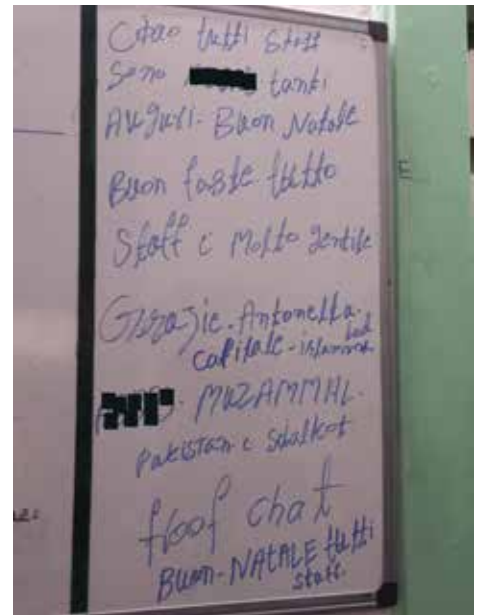 Ciao tutti staff
Sono tanti
Auguri. Buon Natale
Buon faste tutto
Staff è Molto gentile
Grazie. Antonella.
capitale - islammabad
MUZAMMAL.
Pakistan è Sialkot
floof chat
Buon-NATALE tutti
staff.
E